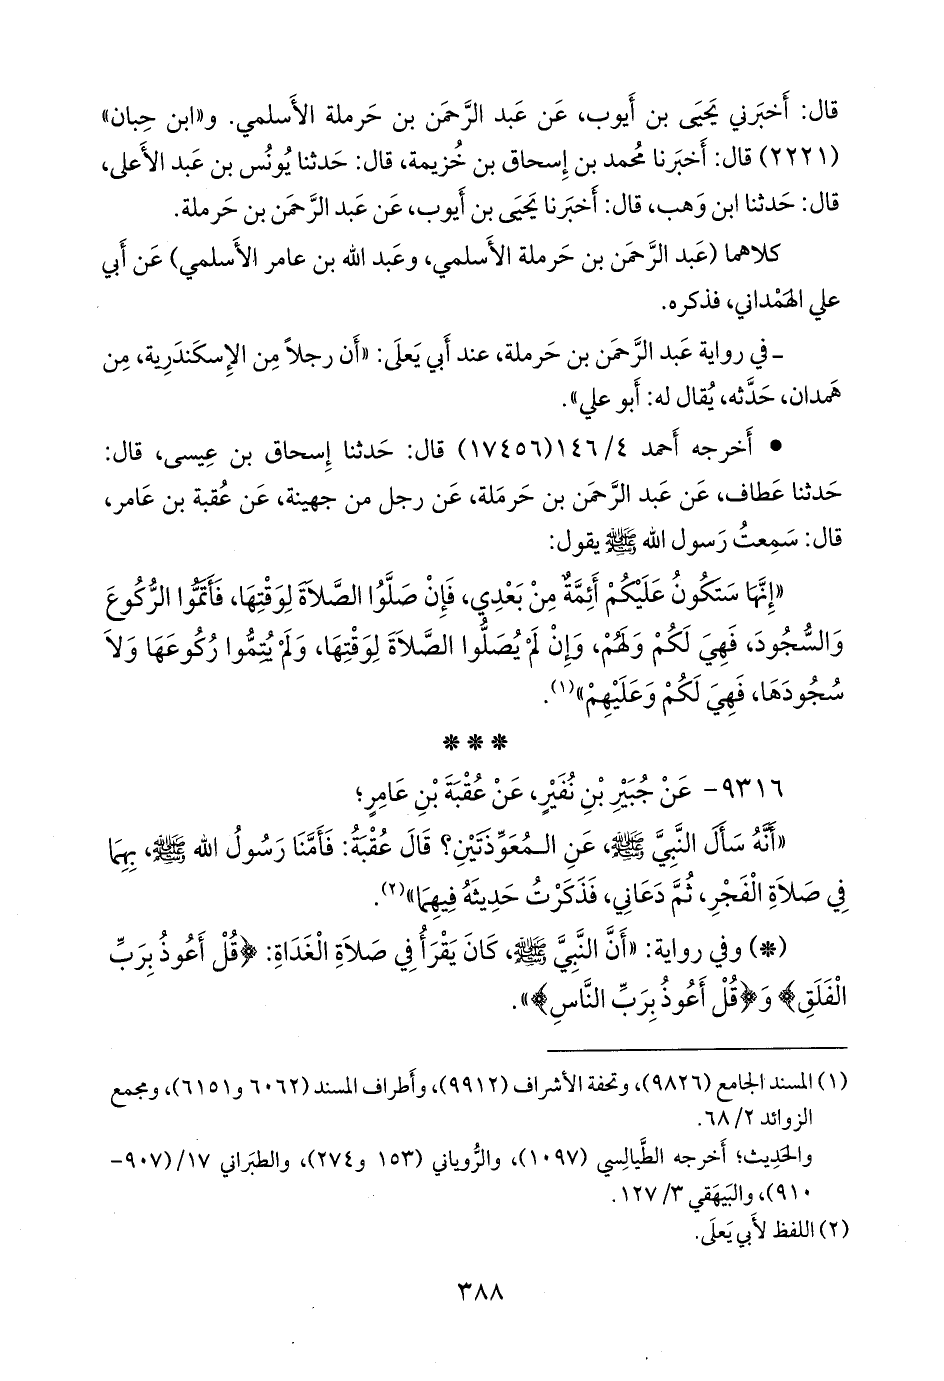 قال: أَخبَرني يَحيَى بن أَيوب، عَن عَبد الرَّحمَن بن حَرملة الأَسلمي. و«ابن حِبان»
(٢٢٢١) قال: أَخبَرنا مُحمد بن إِسحاق بن خُزيمة، قال: حَدثنا يُونُس بن عَبد الأَعلى،
قال: حَدثنا ابن وَهب، قال: أَخبَرنا يَحيَى بن أَيوب، عَن عَبد الرَّحمَن بن حَرملة.
كلاهما (عَبد الرَّحمَن بن حَرملة الأَسلمي، وعَبد الله بن عامر الأَسلمي) عَن أَبي
علي الهَمْداني، فذكره.
ـ في رواية عَبد الرَّحمَن بن حَرملة، عند أَبي يَعلَى: «أَن رجلاً مِن الإِسكَندَرِية، مِن
هَمدان، حَدَّثه، يُقال له: أَبو علي».
• أَخرجه أَحمد ٤/ ١٤٦(١٧٤٥٦) قال: حَدثنا إِسحاق بن عِيسى، قال:
حَدثنا عَطاف، عَن عَبد الرَّحمَن بن حَرمَلة، عَن رجل من جهينة، عَن عُقبة بن عَامر،
قال: سَمِعتُ رَسول الله ﷺ يقول:
«إِنَّهَا سَتَكُونُ عَلَيْكُمْ أَئِمَّةٌ مِنْ بَعْدِي، فَإِنْ صَلَّوُا الصَّلاَةَ لِوَقْتِهَا، فَأَتَمُّوا الرُّكُوعَ
وَالسُّجُودَ، فَهِيَ لَكُمْ وَلَهُمْ، وَإِنْ لَمْ يُصَلُّوا الصَّلاَةَ لِوَقْتِهَا، وَلَمْ يُتِمُّوا رُكُوعَهَا وَلاَ
سُجُودَهَا، فَهِيَ لَكُمْ وَعَلَيْهِمْ»(١).
* * *
٩٣١٦- عَنْ جُبَيْرِ بْنِ نُفَيْرٍ، عَنْ عُقْبَةَ بْنِ عَامِرٍ؛
«أَنَّهُ سَأَلَ النَّبِيَّ ﷺ، عَنِ الـمُعَوِّذَتَيْنِ؟ قَالَ عُقْبَةُ: فَأَمَّنَا رَسُولُ الله ﷺ، بِهِمَا
فِي صَلاَةِ الْفَجْرِ، ثُمَّ دَعَانِي، فَذَكَرْتُ حَدِيثَهُ فِيهِمَا»(٢).
(*) وفي رواية: «أَنَّ النَّبِيَّ ﷺ، كَانَ يَقْرَأُ فِي صَلاَةِ الْغَدَاةِ: ﴿قُلْ أَعُوذُ بِرَبِّ
الْفَلَقِ﴾ وَ﴿قُلْ أَعُوذُ بِرَبِّ النَّاسِ﴾».
(١) المسند الجامع (٩٨٢٦)، وتحفة الأشراف (٩٩١٢)، وأَطراف المسند (٦٠٦٢ و٦١٥١)، ومجمع
الزوائد ٢/ ٦٨.
والحَدِيث؛ أَخرجه الطَّيالِسي (١٠٩٧)، والرُّوياني (١٥٣ و٢٧٤)، والطبَراني ١٧/ (٩٠٧-
٩١٠)، والبَيهَقي ٣/ ١٢٧.
(٢) اللفظ لأَبي يَعلَى.
٣٨٨